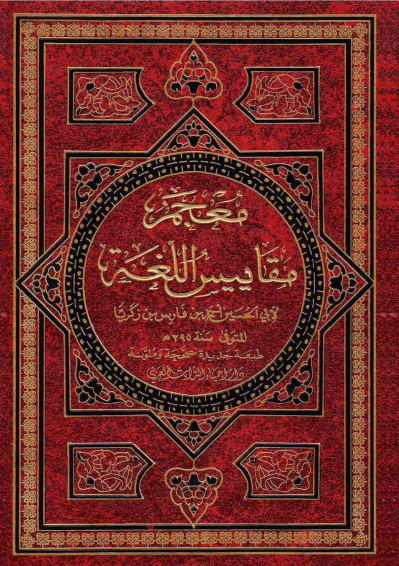 معجم
مقاييس اللغة
لأبي الحسين أحمد بن فارس بن زكريا
المتوفى سنة ٣٩٥ هـ
طبعة جديدة مصححة وملونة
دار إحياء التراث العربي